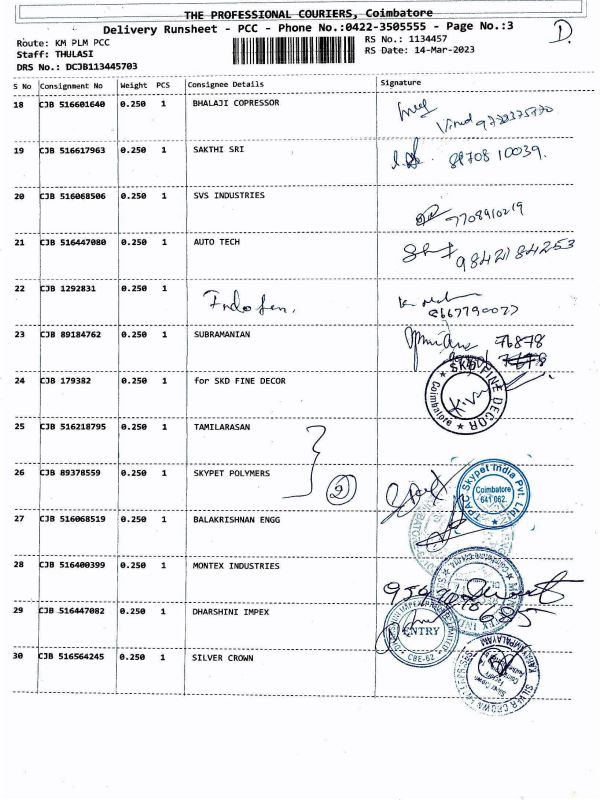 THE PROFESSIONAL COURIERS, Coimbatore
Delivery Runsheet - PCC - Phone No.:0422-3505555 - Page No.:3
D.
Route: KM PLM PCC
RS No.: 1134457
Staff: THULASI
RS Date: 14-Mar-2023
DRS No.: DCJB113445703
S No Consignment No Weight PCS Consignee Details Signature
18 CJB 516601640 0.250 1 BHALAJI COPRESSOR
19 CJB 516617963 0.250 1 SAKTHI SRI
89708 10039.
20 CJB 516068506 0.250 1 SVS INDUSTRIES
7708910219
21 CJB 516447080 0.250 1 AUTO TECH
9842184253
22 CJB 1292831 0.250 1
23 CJB 89184762 0.250 1 SUBRAMANIAN
76878
24 CJB 179382 0.250 1 for SKD FINE DECOR
SKD FINE DECOR
Coimbatore
25 CJB 516218795 0.250 1 TAMILARASAN
26 CJB 89378559 0.250 1 SKYPET POLYMERS
2
TPAC Skypet India Pvt. Ltd.
Coimbatore
641 062.
27 CJB 516068519 0.250 1 BALAKRISHNAN ENGG
28 CJB 516400399 0.250 1 MONTEX INDUSTRIES
29 CJB 516447082 0.250 1 DHARSHINI IMPEX
ENTRY
CBE-62
30 CJB 516564245 0.250 1 SILVER CROWN